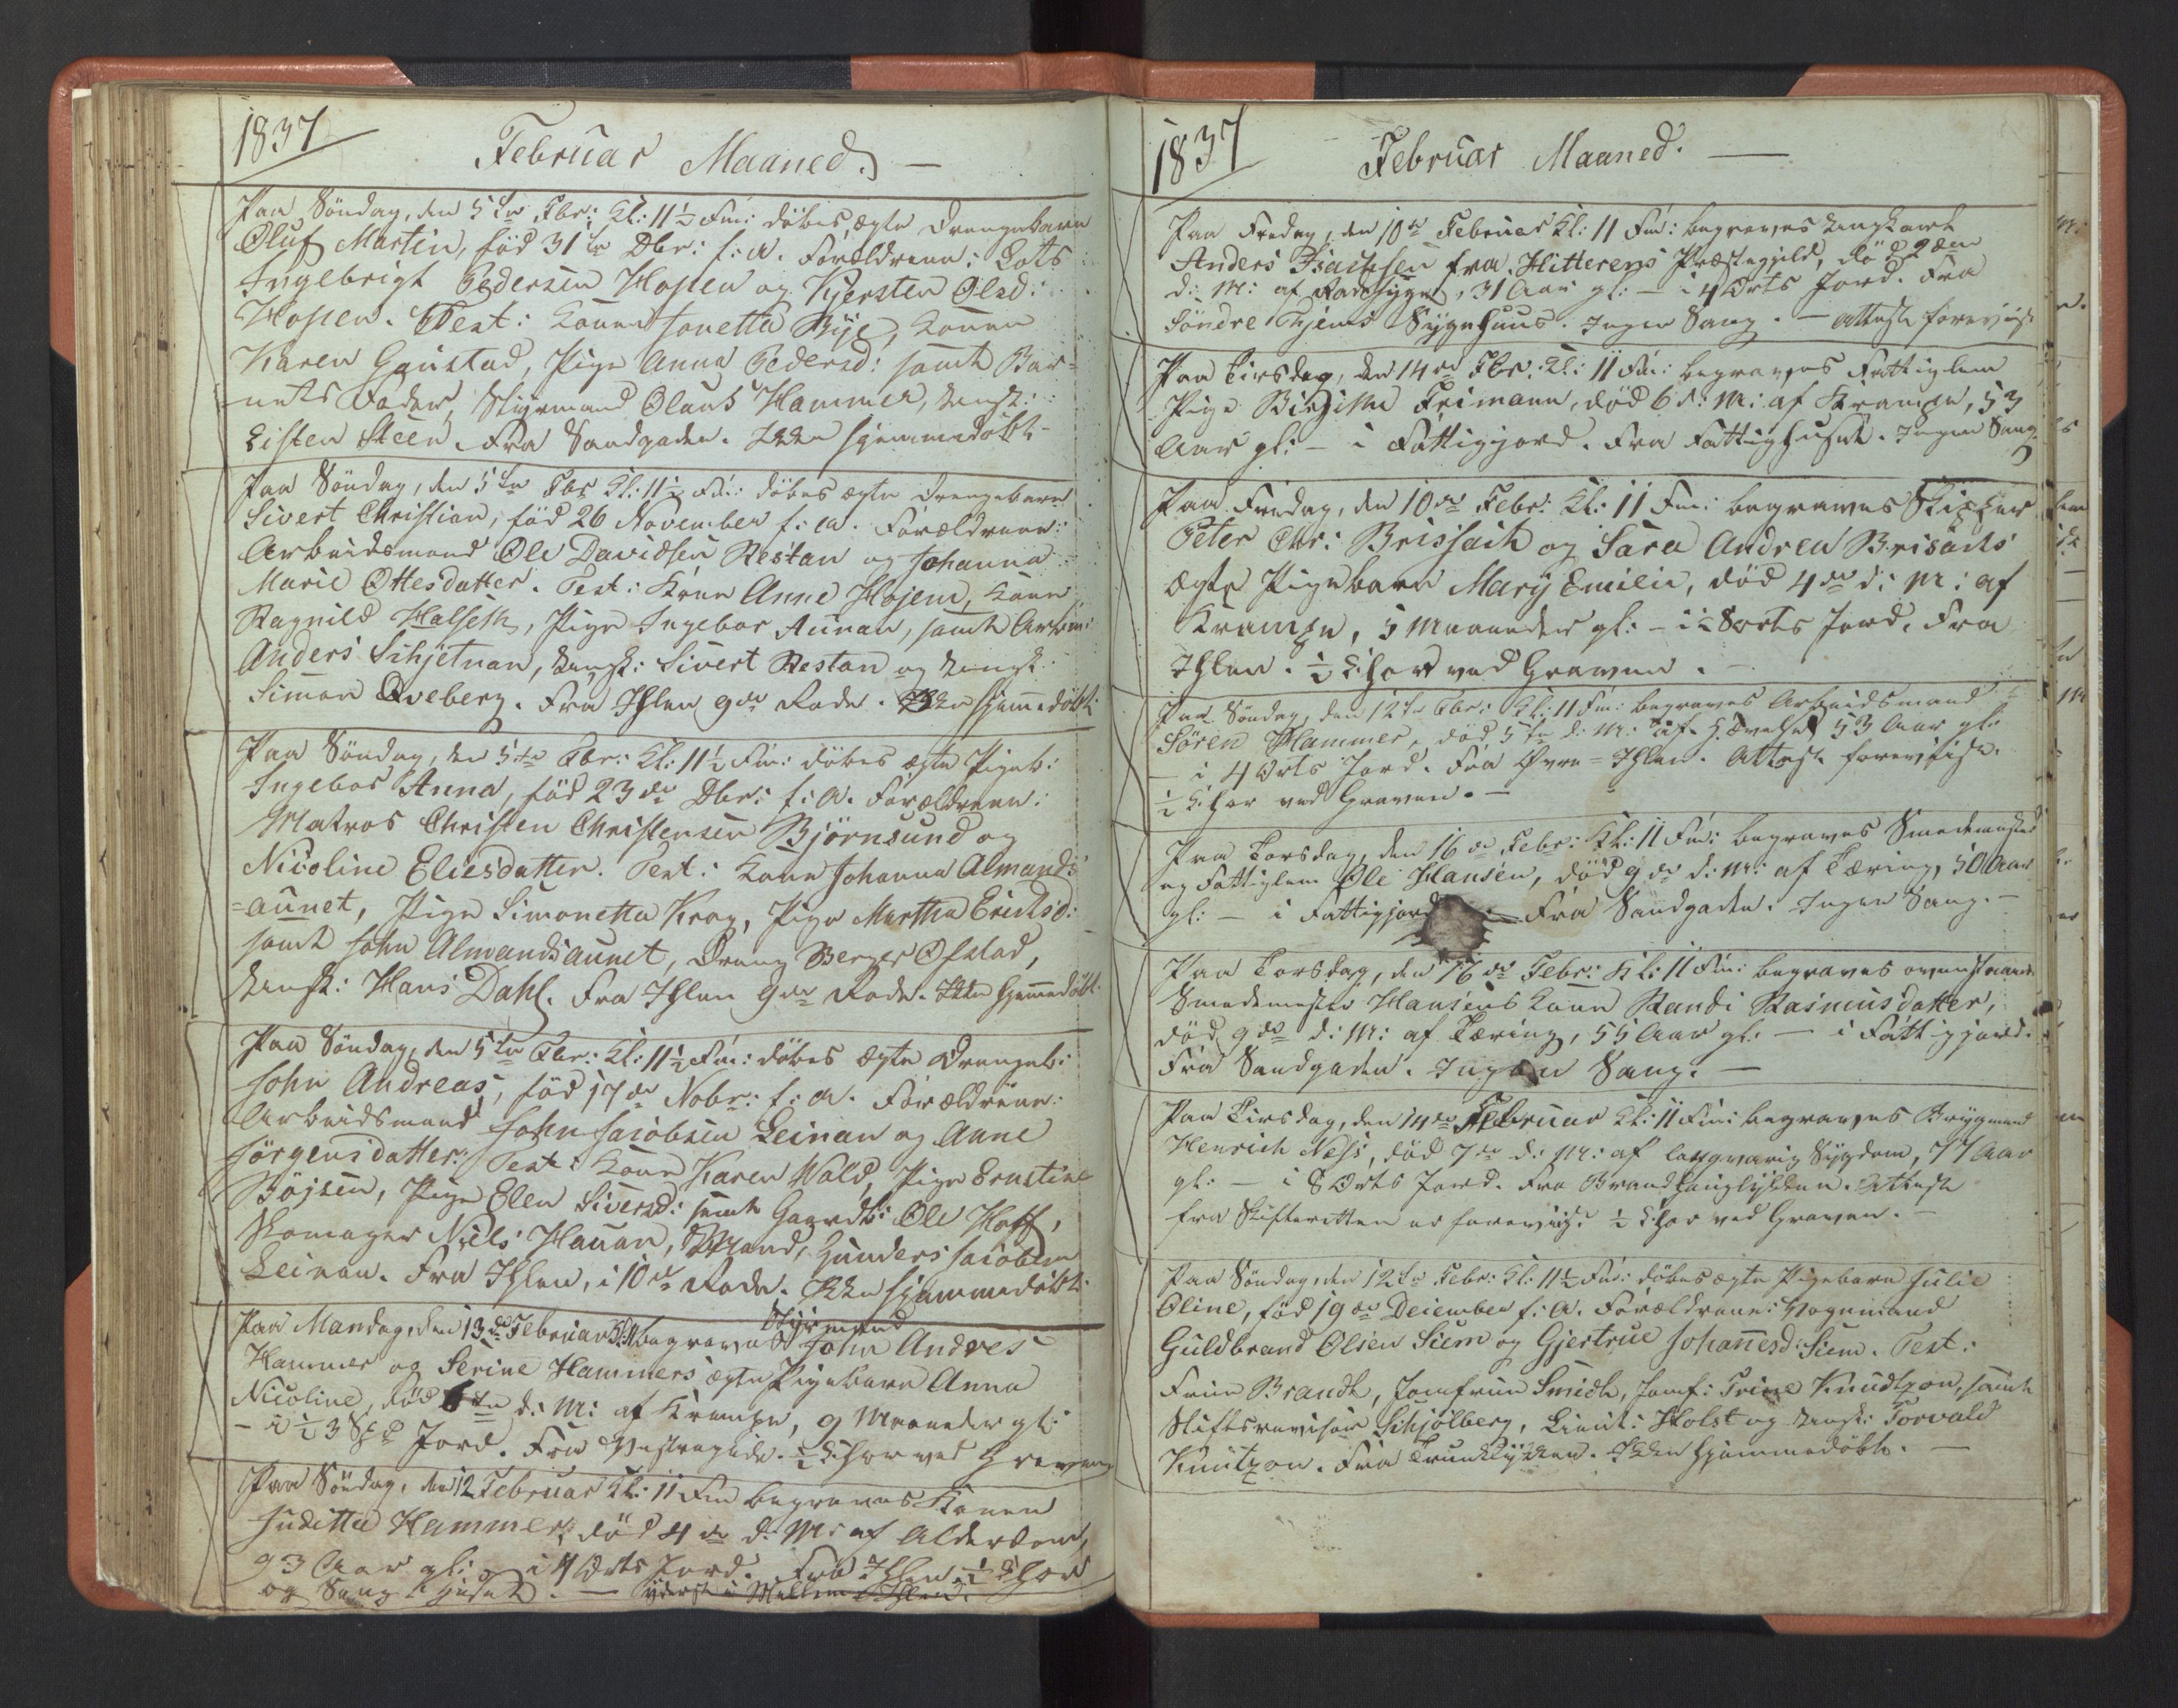 1837
Februar Maaned. —
Paa Söndag, den 5te Fbr: Kl: 11½ Fm: döbes, ægte Drengebarn
Oluf Martin, föd 31te Dbr: f: A. Forældrene: Lots
Ingebrigt Pedersen Hopen og Kjersten Olsd:
Hopen. Test: Konen Jonetta Bÿe, Konen
Karen Gaustad, Pige Anna Pedersd: samt Bar-
nets Fader, Stÿrmand Olaus Hammer, Ungk:
Eisten Steen. Fra Sandgaden. Ikke hjemmedöbt
Paa Söndag, den 5te Fbr Kl: 11½ Fm: döbes ægte Drengebarn
Sivert Christian, föd 26 November f: A. Forældrene:
Arbeidsmand Ole Davidsen Restan og Johanna
Marie Ottesdatter. Test: Kone Anne Höjem, Kone
Ragnild Halseth, Pige Ingebor Aunan, samt Arbm:
Anders Schjetnan, Ungk: Sivert Restan og Ungk:
Simon Qveberg. Fra Ihlen 9de Rode. Ikke hjemmedöbt.
Paa Söndag, den 5te Fbr: Kl: 11½ Fm: döbes ægte Pigeb:
Ingebor Anna, föd 23de Dbr: f: A. Forældrene:
Matros Christen Christensen Björnsund og
Nicoline Eliesdatter. Test: Kone Johanna Almands-
=aunet, Pige Simonetta Krog, Pige Martha Erichsd:
samt John Almandsaunet, Dreng Berger Ofstad,
Ungk: Hans Dahl. Fra Ihlen 9de Rode. Ikke hjemmedöbt.
Paa Söndag, den 5te Fbr: Kl: 11½ Fm: döbes ægte Drengeb:
John Andreas, föd 17de Nobr: f: A. Forældrene:
Arbeidsmand John Jacobsen Leinan og Anne
Jörgensdatter. Test: Kone Karen Wold, Pige Ernstine
Böjsen, Pige Elen Siversd: samt Gaardb: Ole Hoff,
Skomager Niels Hauan, Mand, Gunders Jacobsen
Leinan. Fra Ihlen, i 10de Rode. Ikke hjemmedöbt.
Stÿrmand
Paa Mandag, den 13de Februar Kl: 11 begraves John Andres
Hammer og Serine Hammers ægte Pigebarn Anna
Nicoline, död 6te d: M: af Krampe, 9 Maaneder gl:
— i ½ 3 Spd Jord. Fra Vestregade. ½ Chor ved Graven
Paa Söndag, den 12 Februar Kl: 11 Fm begraves Konen
Juditta Hammer, död 4de d: M: af Alderdom,
93 Aar gl: — i 4 Orts Jord. Fra Ihlen. ½ Chor
og Sang i Huset. — yderst i Mellem Ihlen.
1837
Februar Maaned. —
Paa Fredag, den 10de Februar Kl: 11 Fm: begraves Ungkarl
Anders Isachsen fra Hitterens Præstegjeld, död 2den
d: M: af Radesyge, 31 Aar gl: — i 4 Orts Jord. Fra
Söndre Thjems Sÿgehuus. Ingen Sang. — Attest foreviist
Paa Tirsdag, den 14de Fbr: Kl: 11 Fm: begraves Fattiglem
Pige Birgitte Frimann, död 6 d: M: af Krampe, 53
Aar gl: — i Fattigjord. Fra Fattighuset. Ingen Sang.
Paa Fredag, den 10de Febr: Kl: 11 Fm: begraves Skipper
Peter Chr: Brissach og Sara Andrea Brisachs
ægte Pigebarn Marÿ Emilie, död 4de d: M: af
Krampe, 5 Maaneder gl: — i 2 Orts Jord. Fra
Ihlen. ½ Chor ved Graven. —
Paa Söndag, den 12te Fbr: Kl: 11 Fm: begraves Arbeidsmand
Sören Hammer, död 5te d: M: af Hævelse, 53 Aar gl:
— i 4 Orts Jord. Fra Övre-Ihlen. Attest foreviist.
½ Chor ved Graven. —
Paa Torsdag, den 16de Febr: Kl: 11 Fm: begraves Smedemester
og Fattiglem Ole Hansen, död 9de d: M: af Tæring, 50 Aar
gl: — i Fattigjord. Fra Sandgaden. Ingen Sang. —
Paa Torsdag, den 16de Febr: Kl: 11 Fm: begraves ovenstaaende
Smedemester Hansens Kone Randi Rasmusdatter,
död 9de d: M: af Tæring, 55 Aar gl: — i Fattigjord.
Fra Sandgaden. Ingen Sang. —
Paa Tirsdag, den 14de Februar Kl: 11 Fm: begraves Brÿgmand
Henrich Ness, död 7de d: M: af langvarig Sÿgdom, 77 Aar
gl: — i 8 Orts Jord. Fra Brandhauglÿkken. Attest
fra Skifteretten er foreviist. ½ Chor ved Graven. —
Paa Söndag, den 12te Febr: Kl: 11½ Fm: döbes ægte Pigebarn Julie
Oline, föd 19de December f: A. Forældrene: Vognmand
Guldbrand Olsen Siem og Gjertrue Johannesd: Siem. Test:
Frue Brandt, Jomfrue Smidt, Jomf: Trine Knudtzon, samt
Stiftsrevisor Schjölberg, Lieut: Holst og Ungk: Torvald
Knutzon. Fra Trunklÿkken. Ikke hjemmedöbt. —